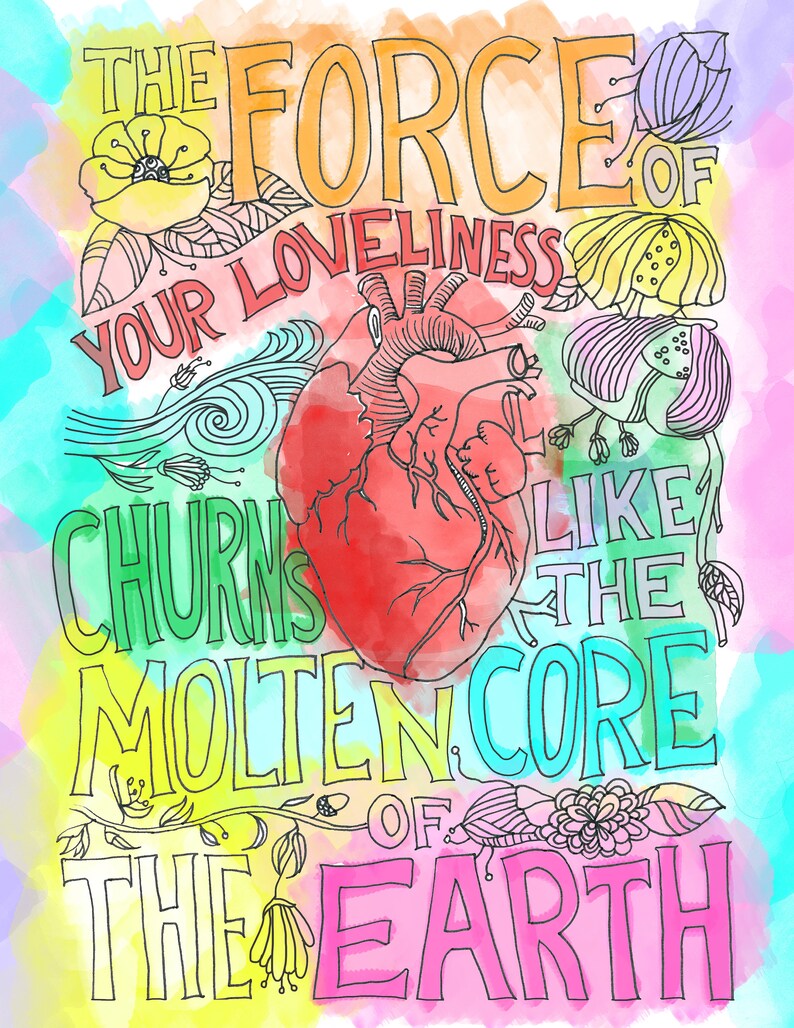 THE FORCE OF
YOUR LOVELINESS
CHURNS LIKE THE
MOLTEN CORE
OF
THE EARTH